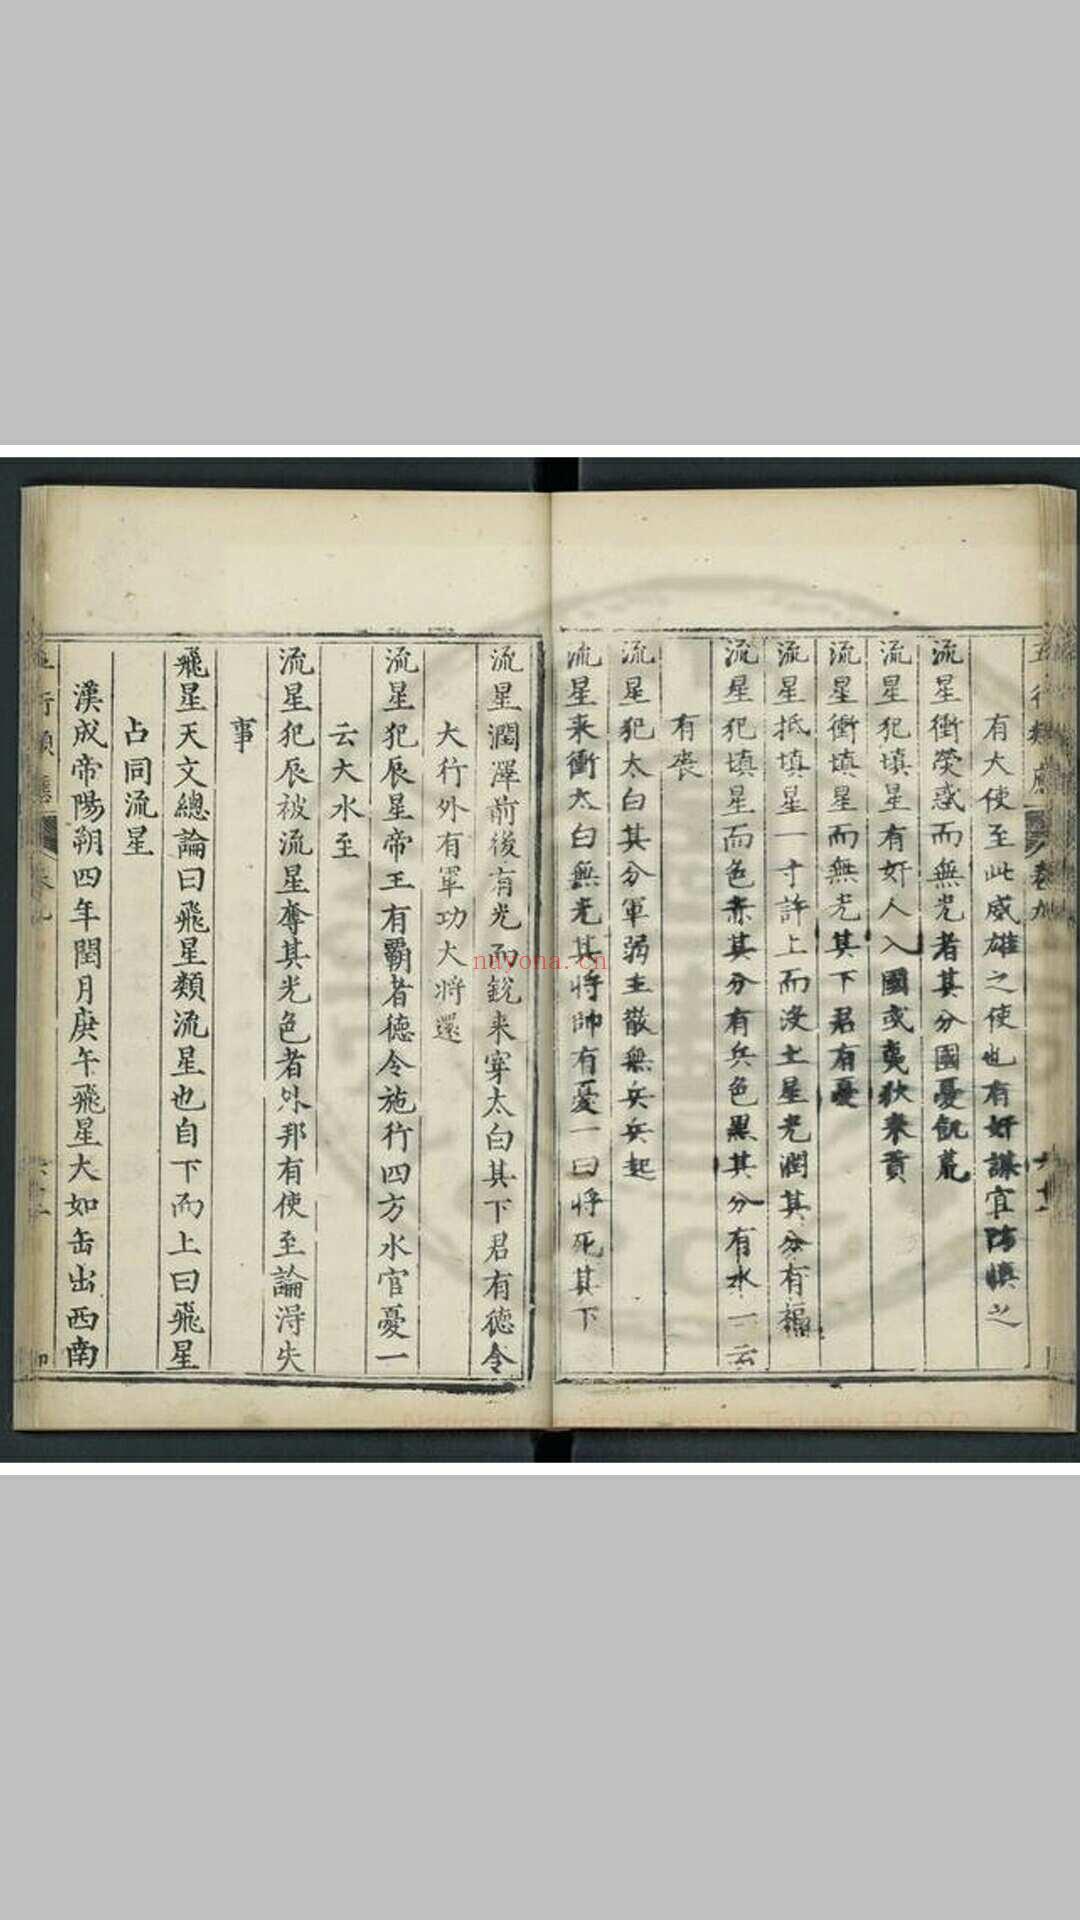 五行類應 卷九
有大使至此威雄之使也有奸謀宜防慎之
流星衝熒惑而無光者其分國憂飢荒
流星犯填星有奸人入國或夷狄來貢
流星衝填星而無光其下君有憂
流星抵填星一寸許上而没土星光潤其分有福
流星犯填星而色赤其分有兵色黒其分有水一云
有喪
流星犯太白其分軍弱主散無兵兵起
流星来衝太白無光其將帥有憂一曰將死其下
流星潤澤前後有光而銳来穿太白其下君有德令
大行外有軍功大將還
流星犯辰星帝王有覇者德令施行四方水官憂一
云大水至
流星犯辰被流星奪其光色者外邦有使至論淂失
事
飛星天文總論曰飛星類流星也自下而上曰飛星
占同流星
漢成帝陽朔四年閏月庚午飛星大如缶出西南
nuyona.cn